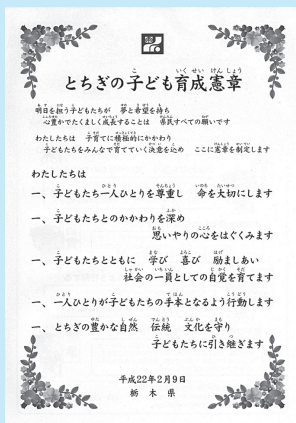 とちぎの子ども育成憲章
明日を担う子どもたちが 夢と希望を持ち
心豊かでたくましく成長することは 県民すべての願いです
わたしたちは 子育てに積極的にかかわり
子どもたちをみんなで育てていく決意を込め ここに憲章を制定します
わたしたちは
一、子どもたち一人ひとりを尊重し 命を大切にします
一、子どもたちとのかかわりを深め
思いやりの心をはぐくみます
一、子どもたちとともに 学び 喜び 励ましあい
社会の一員としての自覚を育てます
一、一人ひとりが子どもたちの手本となるよう行動します
一、とちぎの豊かな自然 伝統 文化を守り
子どもたちに引き継ぎます
平成22年2月9日
栃木県